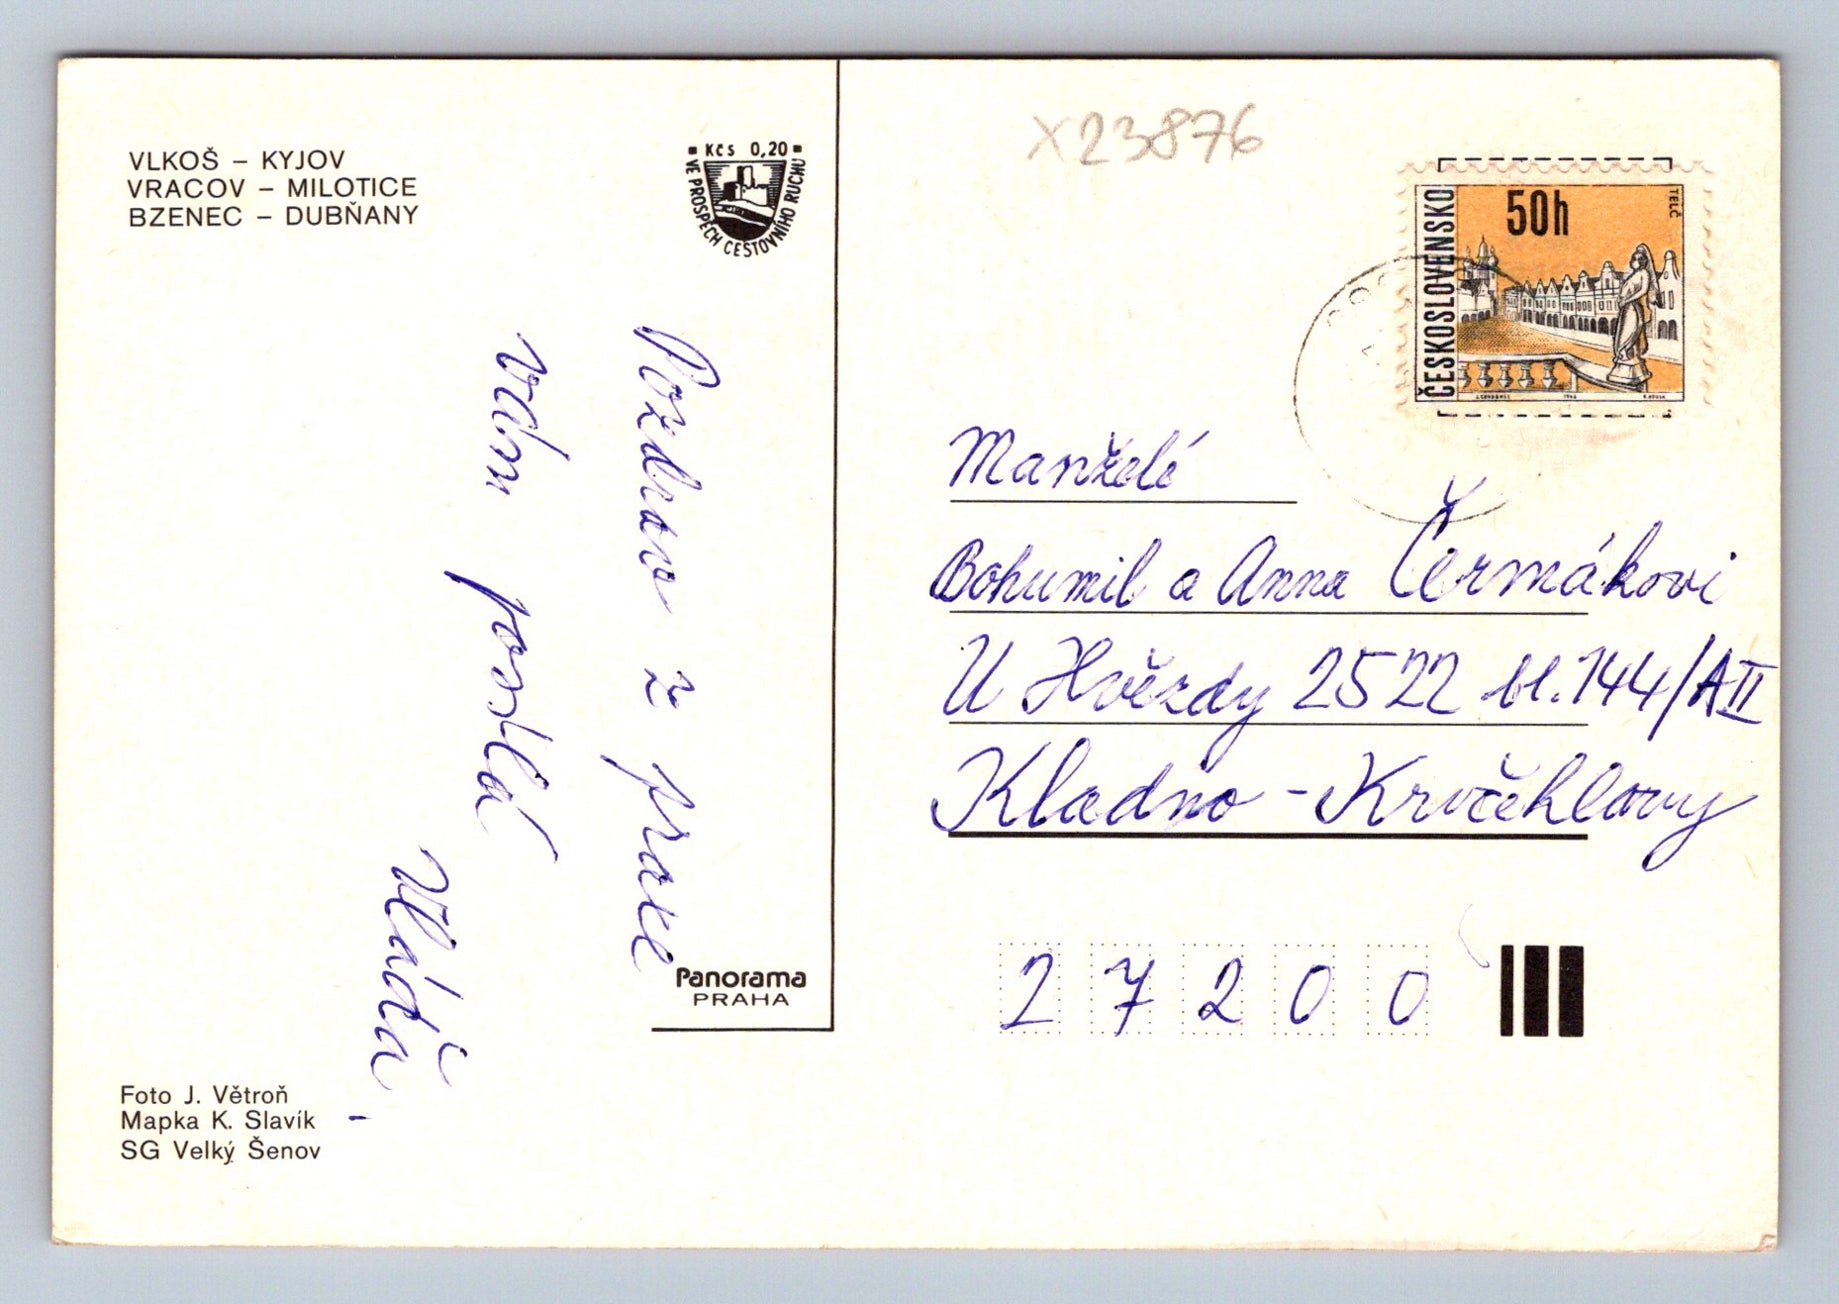 VLKOŠ – KYJOV
VRACOV – MILOTICE
BZENEC – DUBŇANY
Kčs 0,20
VE PROSPĚCH CESTOVNÍHO RUCHU
Pozdrav z praxe
vám posílá
Vláďa.
Panorama
PRAHA
Foto J. Větroň
Mapka K. Slavík
SG Velký Šenov
X23876
ČESKOSLOVENSKO
50h
TELČ
Manželé
Bohumil a Anna Čermákovi
U Hvězdy 2522 bl.144/AII
Kladno - Kročehlavy
27200